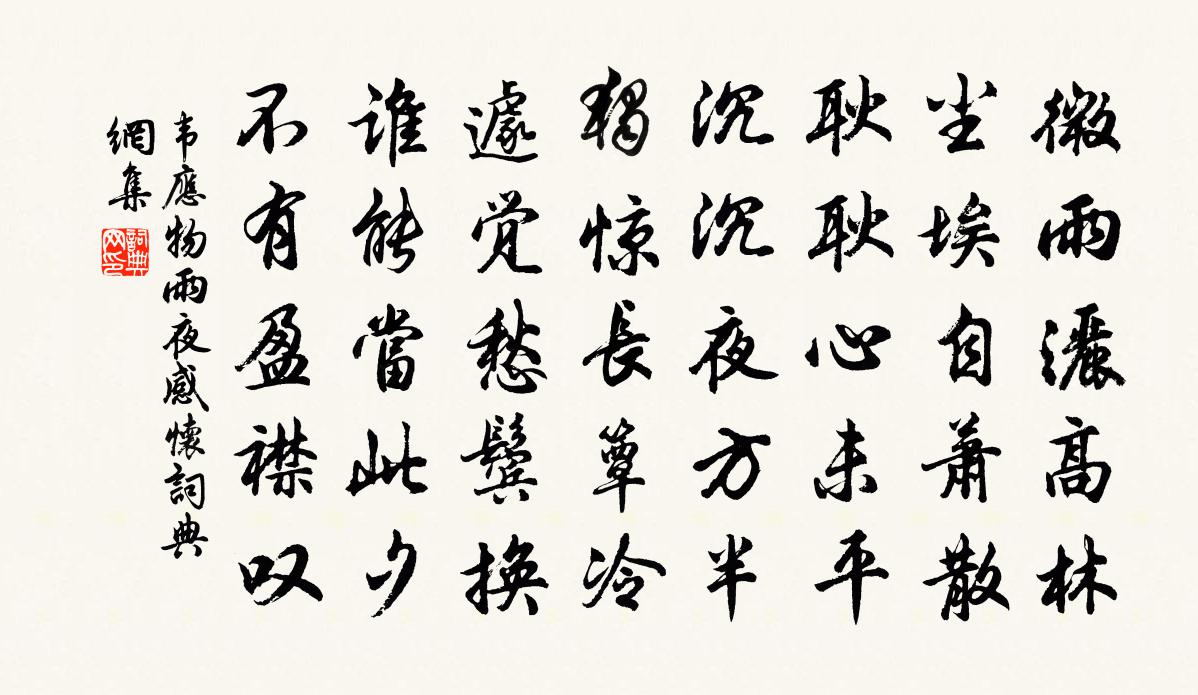 微雨灑高林
尘埃自萧散
耿耿心未平
沉沉夜方半
独惊长簟冷
遽觉愁鬓换
谁能當此夕
不有盈襟叹
韦應物雨夜感懷詞典
網集
詞典
网印